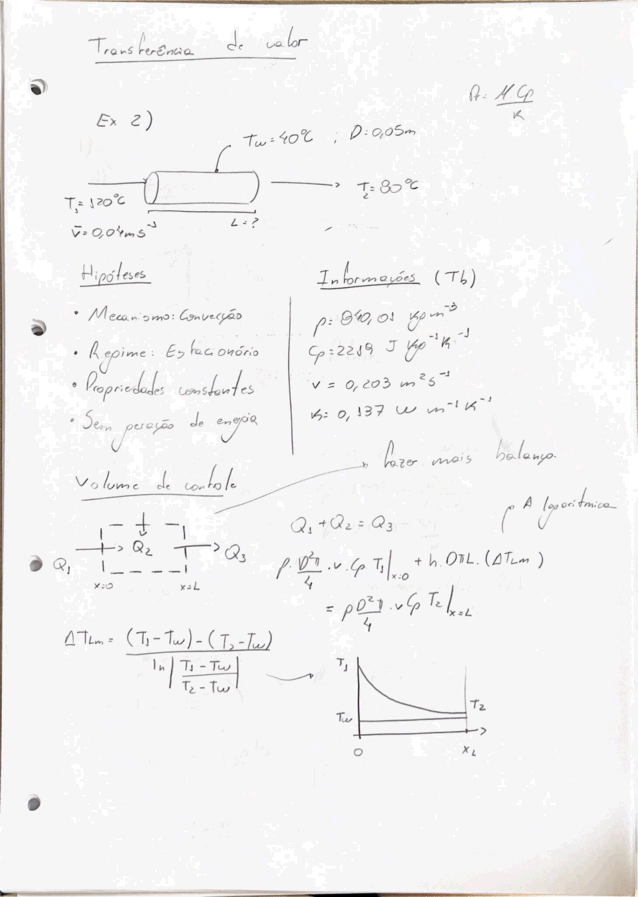 Transferência de calor
A = MCp / K
Ex 2)
Tw = 40°C ; D = 0,05m
T1 = 120°C
v̄ = 0,04 m s⁻¹
L = ?
T2 = 80°C
Hipóteses
• Mecanismo: Convecção
• Regime: Estacionário
• Propriedades constantes
• Sem geração de energia
Informações (Tb)
ρ = 840,01 kg m⁻³
Cp = 2219 J kg⁻¹ K⁻¹
v = 0,203 m² s⁻¹
K = 0,137 W m⁻¹ K⁻¹
fazer mais balanço.
Volume de controle
Q1 Q2 Q3
x=0 x=L
Q1 + Q2 = Q3
Δ logarítmica
ρ. D²π/4 . v. Cp T1|x=0 + h. DπL. (ΔTLm)
= ρ D²π/4 . v Cp T2|x=L
ΔTLm = (T1 - Tw) - (T2 - Tw) / ln |T1 - Tw / T2 - Tw|
T1
T2
Tw
0 xL